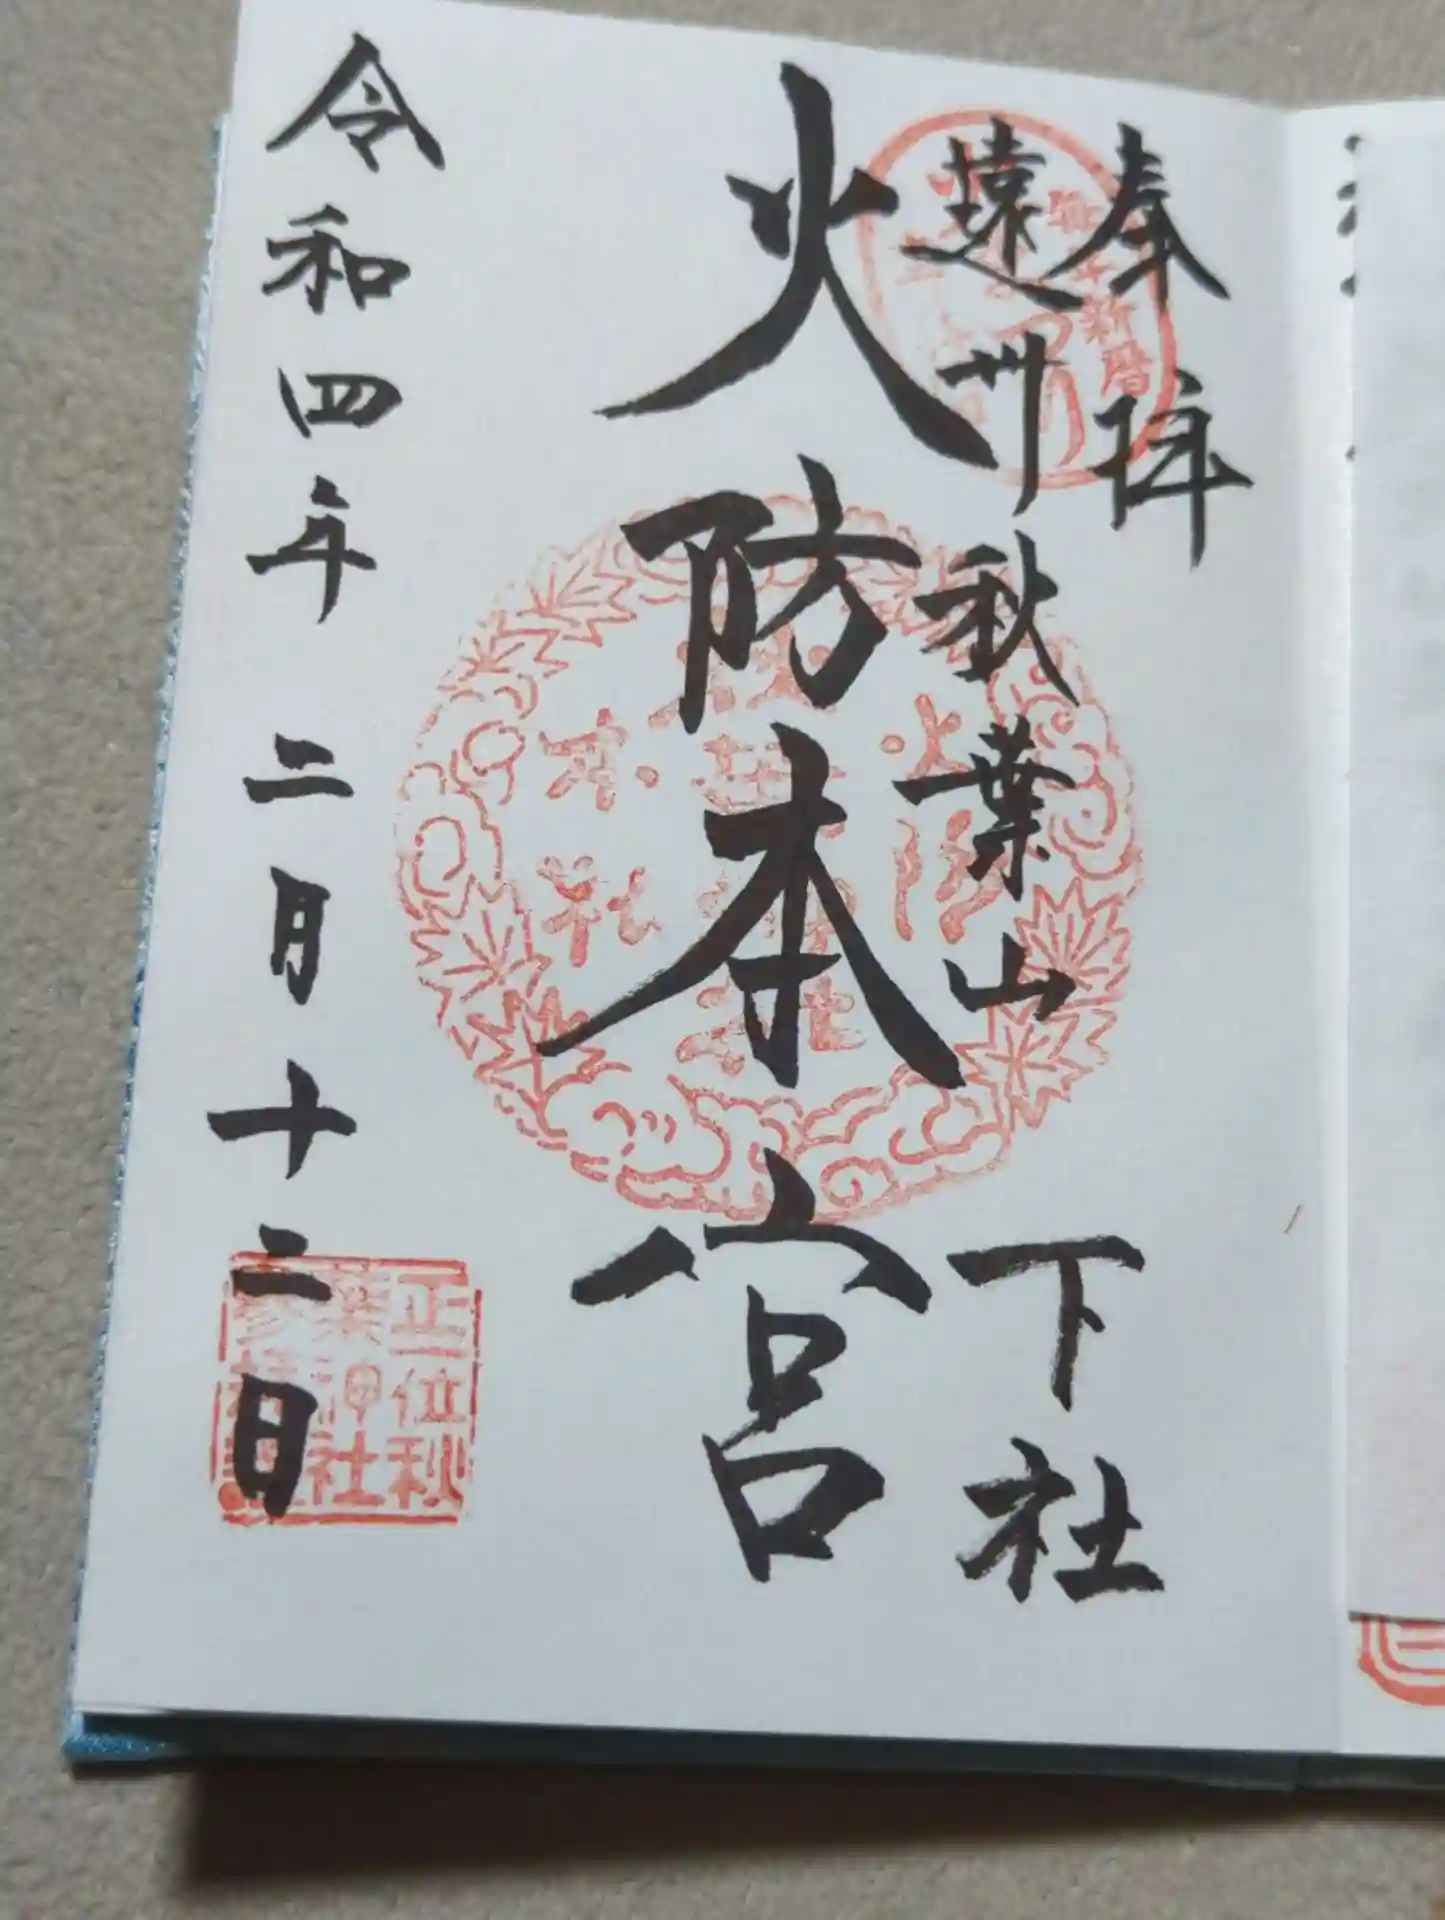 奉拝
遠州秋葉山
下社
火防本宮
令和四年二月十二日
正位秋
葉神社